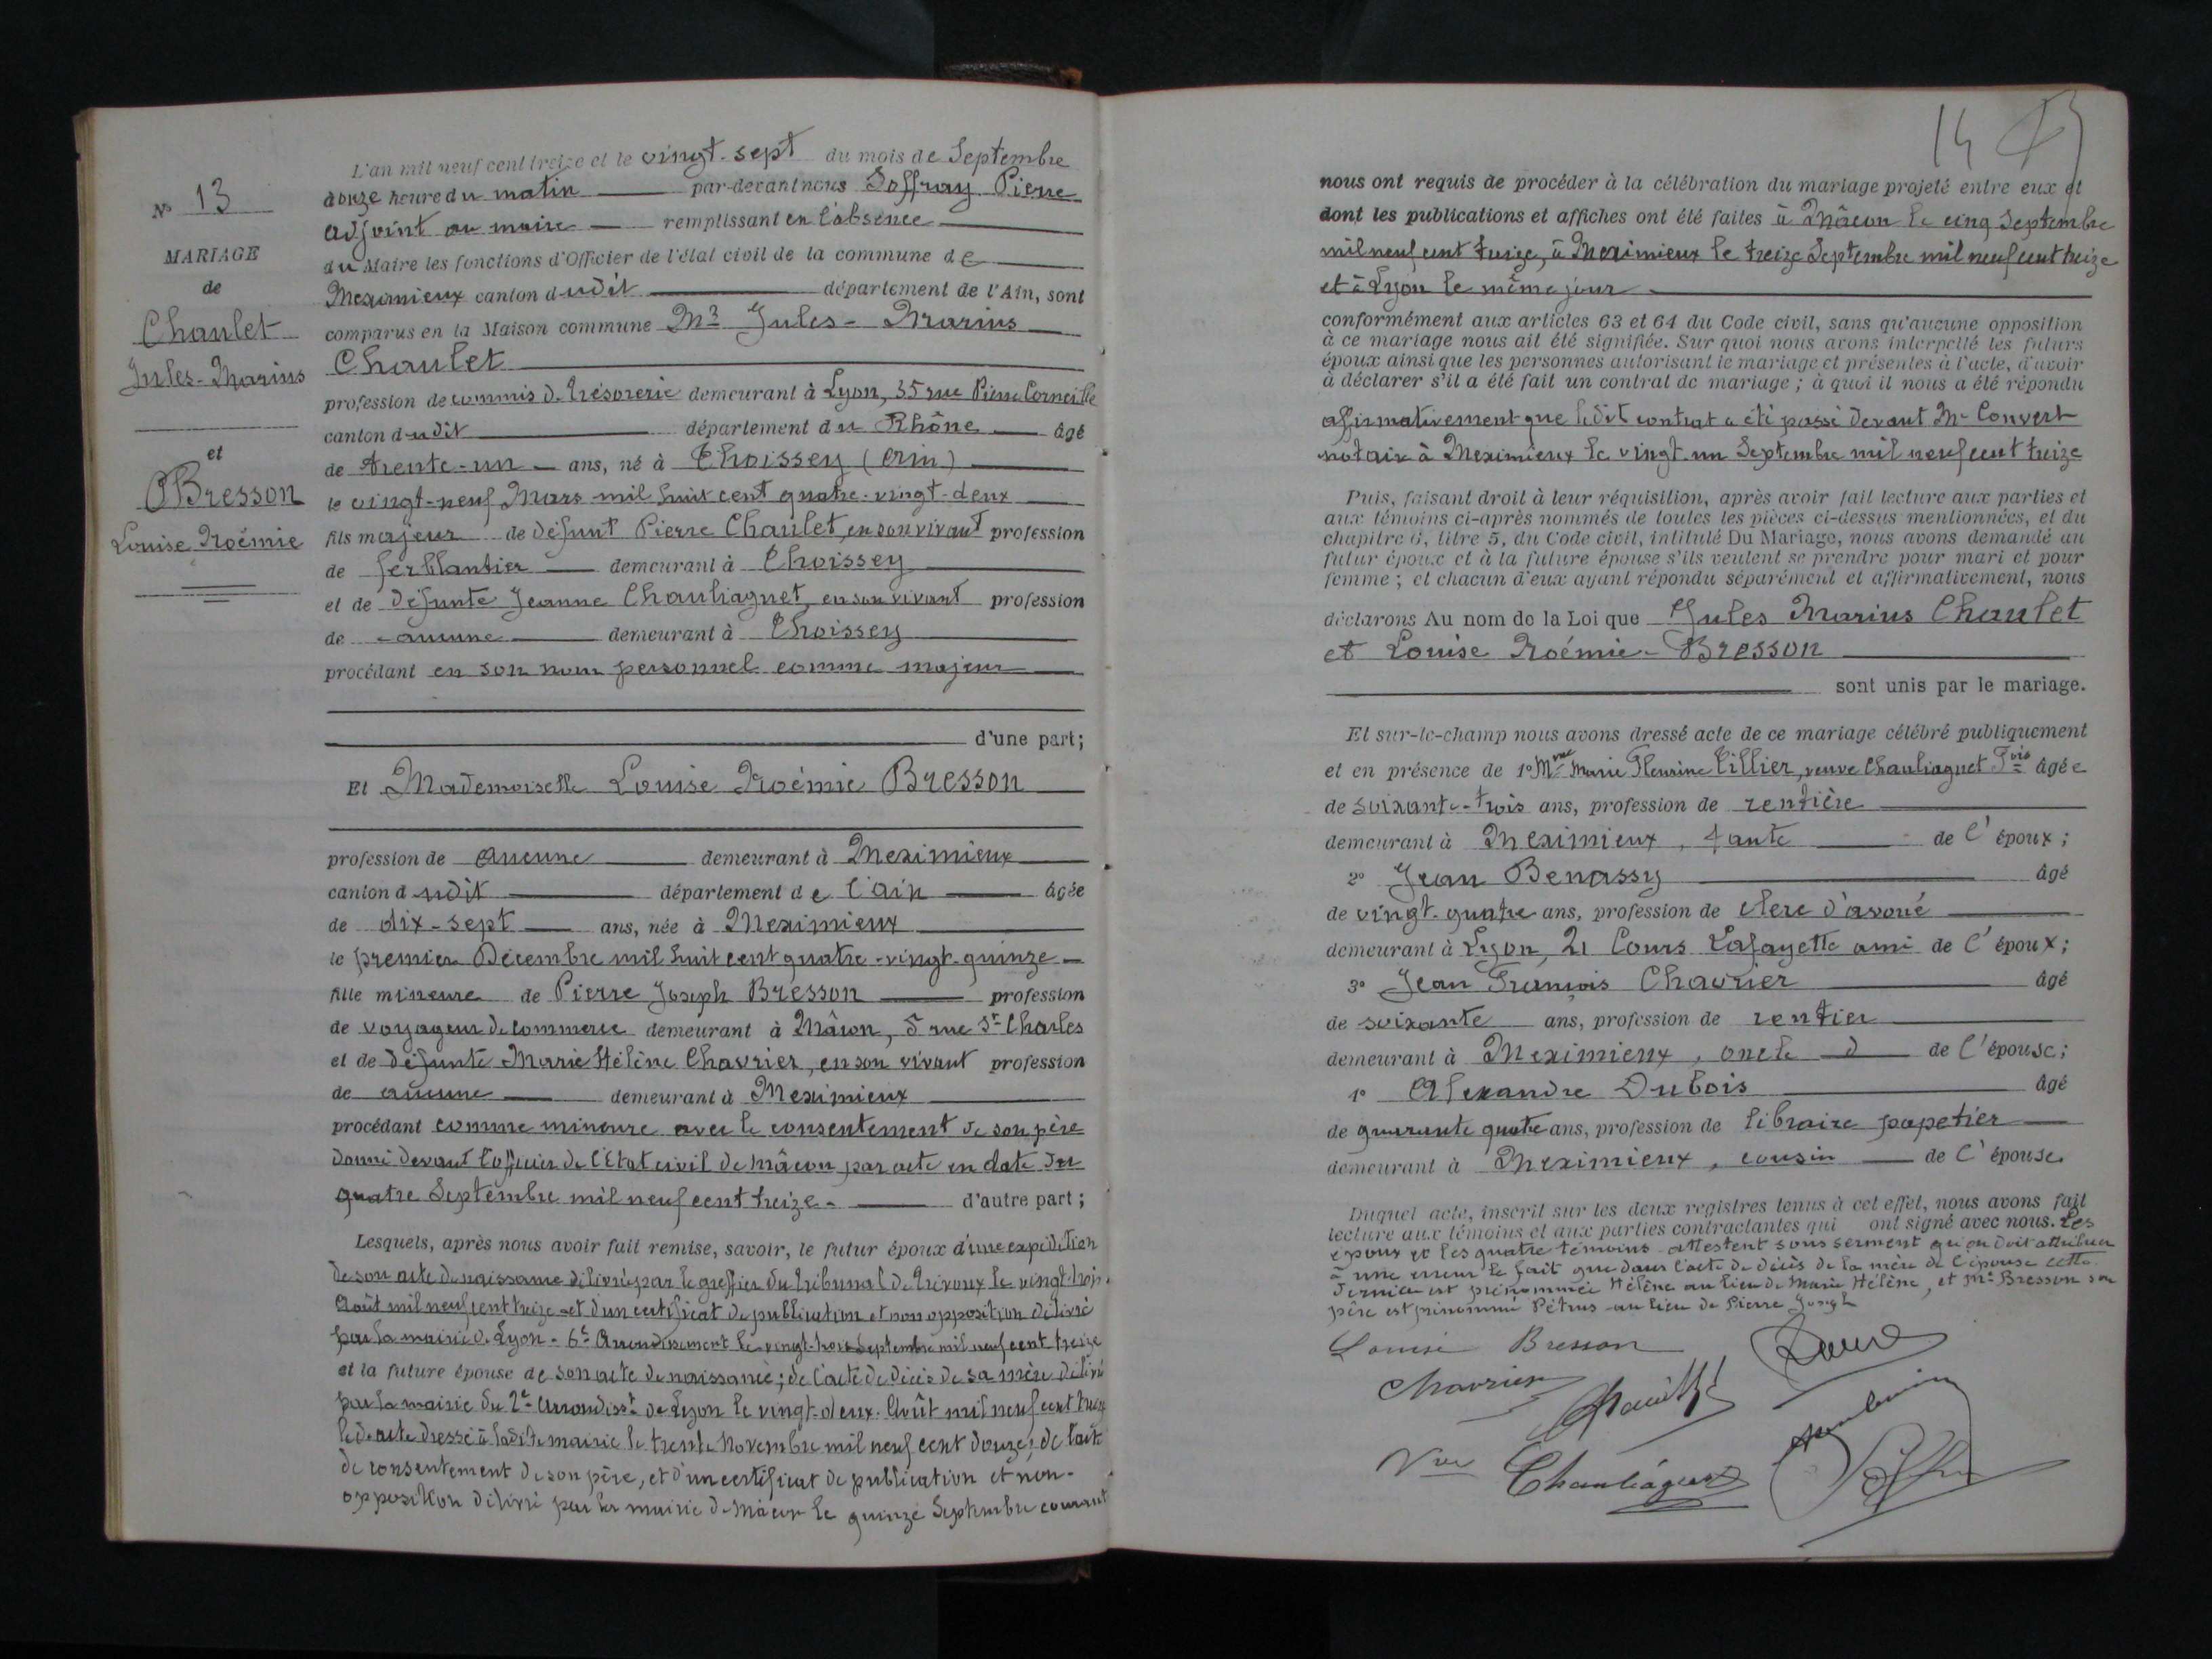 N° 13
MARIAGE
de
Chaulet
Jules-Marius
et
Bresson
Louise Noémie
L'an mil neuf cent treize et le vingt-sept du mois de Septembre
onze heure du matin par-devant nous Soffray Pierre
adjoint au maire remplissant en l'absence
du Maire les fonctions d'Officier de l'état civil de la commune de
Meximieux canton dudit département de l'Ain, sont
comparus en la Maison commune Mr Jules-Marius
Chaulet
profession de commis de trésorerie demeurant à Lyon, 35 rue Pierre Corneille
canton dudit département du Rhône âgé
de trente-un ans, né à Thoissey (Ain)
le vingt-neuf Mars mil huit cent quatre-vingt-deux
fils majeur de défunt Pierre Chaulet, en son vivant profession
de ferblantier demeurant à Thoissey
et de défunte Jeanne Chauliaguet, en son vivant profession
de aucune demeurant à Thoissey
procédant en son nom personnel comme majeur
d'une part;
Et Mademoiselle Louise Noémie Bresson
profession de aucune demeurant à Meximieux
canton dudit département de l'Ain âgée
de dix-sept ans, née à Meximieux
le premier Décembre mil huit cent quatre-vingt-quinze
fille mineure de Pierre Joseph Bresson profession
de voyageur de commerce demeurant à Mâcon, 5 rue St Charles
et de défunte Marie Hélène Chavrier, en son vivant profession
de aucune demeurant à Meximieux
procédant comme mineure avec le consentement de son père
donné devant l'officier de l'État civil de Mâcon par acte en date du
quatre Septembre mil neuf cent treize. d'autre part;
Lesquels, après nous avoir fait remise, savoir, le futur époux d'une expédition
de son acte de naissance délivrée par le greffier du tribunal de Trévoux le vingt-trois
Août mil neuf cent treize et d'un certificat de publication et non opposition délivré
par la mairie de Lyon - 6e Arrondissement le vingt-trois Septembre mil neuf cent treize
et la future épouse de son acte de naissance; de l'acte de décès de sa mère délivré
par la mairie du 2e Arrondisst de Lyon le vingt-deux Août mil neuf cent treize
le dit acte dressé à ladite mairie le trente Novembre mil neuf cent douze; de l'acte
de consentement de son père, et d'un certificat de publication et non-
opposition délivré par la mairie de Mâcon le quinze Septembre courant
14
nous ont requis de procéder à la célébration du mariage projeté entre eux et
dont les publications et affiches ont été faites à Mâcon le cinq Septembre
mil neuf cent treize, à Meximieux le treize Septembre mil neuf cent treize
et à Lyon le même jour
conformément aux articles 63 et 64 du Code civil, sans qu'aucune opposition
à ce mariage nous ait été signifiée. Sur quoi nous avons interpellé les futurs
époux ainsi que les personnes autorisant le mariage et présentes à l'acte, d'avoir
à déclarer s'il a été fait un contrat de mariage; à quoi il nous a été répondu
affirmativement que ledit contrat a été passé devant Me Convert
notaire à Meximieux le vingt-un Septembre mil neuf cent treize
Puis, faisant droit à leur réquisition, après avoir fait lecture aux parties et
aux témoins ci-après nommés de toutes les pièces ci-dessus mentionnées, et du
chapitre 6, titre 5, du Code civil, intitulé Du Mariage, nous avons demandé au
futur époux et à la future épouse s'ils veulent se prendre pour mari et pour
femme; et chacun d'eux ayant répondu séparément et affirmativement, nous
déclarons Au nom de la Loi que Jules Marius Chaulet
et Louise Noémie Bresson
sont unis par le mariage.
Et sur-le-champ nous avons dressé acte de ce mariage célébré publiquement
et en présence de 1° Mme Marie Fleurine Tillier, veuve Chauliaguet Fois âgée
de soixante-trois ans, profession de rentière
demeurant à Meximieux, tante de l'époux;
2° Jean Benassy âgé
de vingt-quatre ans, profession de clerc d'avoué
demeurant à Lyon, 21 Cours Lafayette ami de l'époux;
3° Jean François Chavrier âgé
de soixante ans, profession de rentier
demeurant à Meximieux, oncle d de l'épouse;
4° Alexandre Dubois âgé
de quarante quatre ans, profession de libraire papetier
demeurant à Meximieux, cousin de l'épouse
Duquel acte, inscrit sur les deux registres tenus à cet effet, nous avons fait
lecture aux témoins et aux parties contractantes qui ont signé avec nous. Les
époux et les quatre témoins attestent sous serment qu'on doit attribuer
à une erreur le fait que dans l'acte de décès de la mère de l'épouse cette
dernière est prénommée Hélène au lieu de Marie Hélène, et Mr Bresson son
père est prénommé Pétrus au lieu de Pierre Joseph
Louise Bresson
Chavrier
Vve Chauliaguet